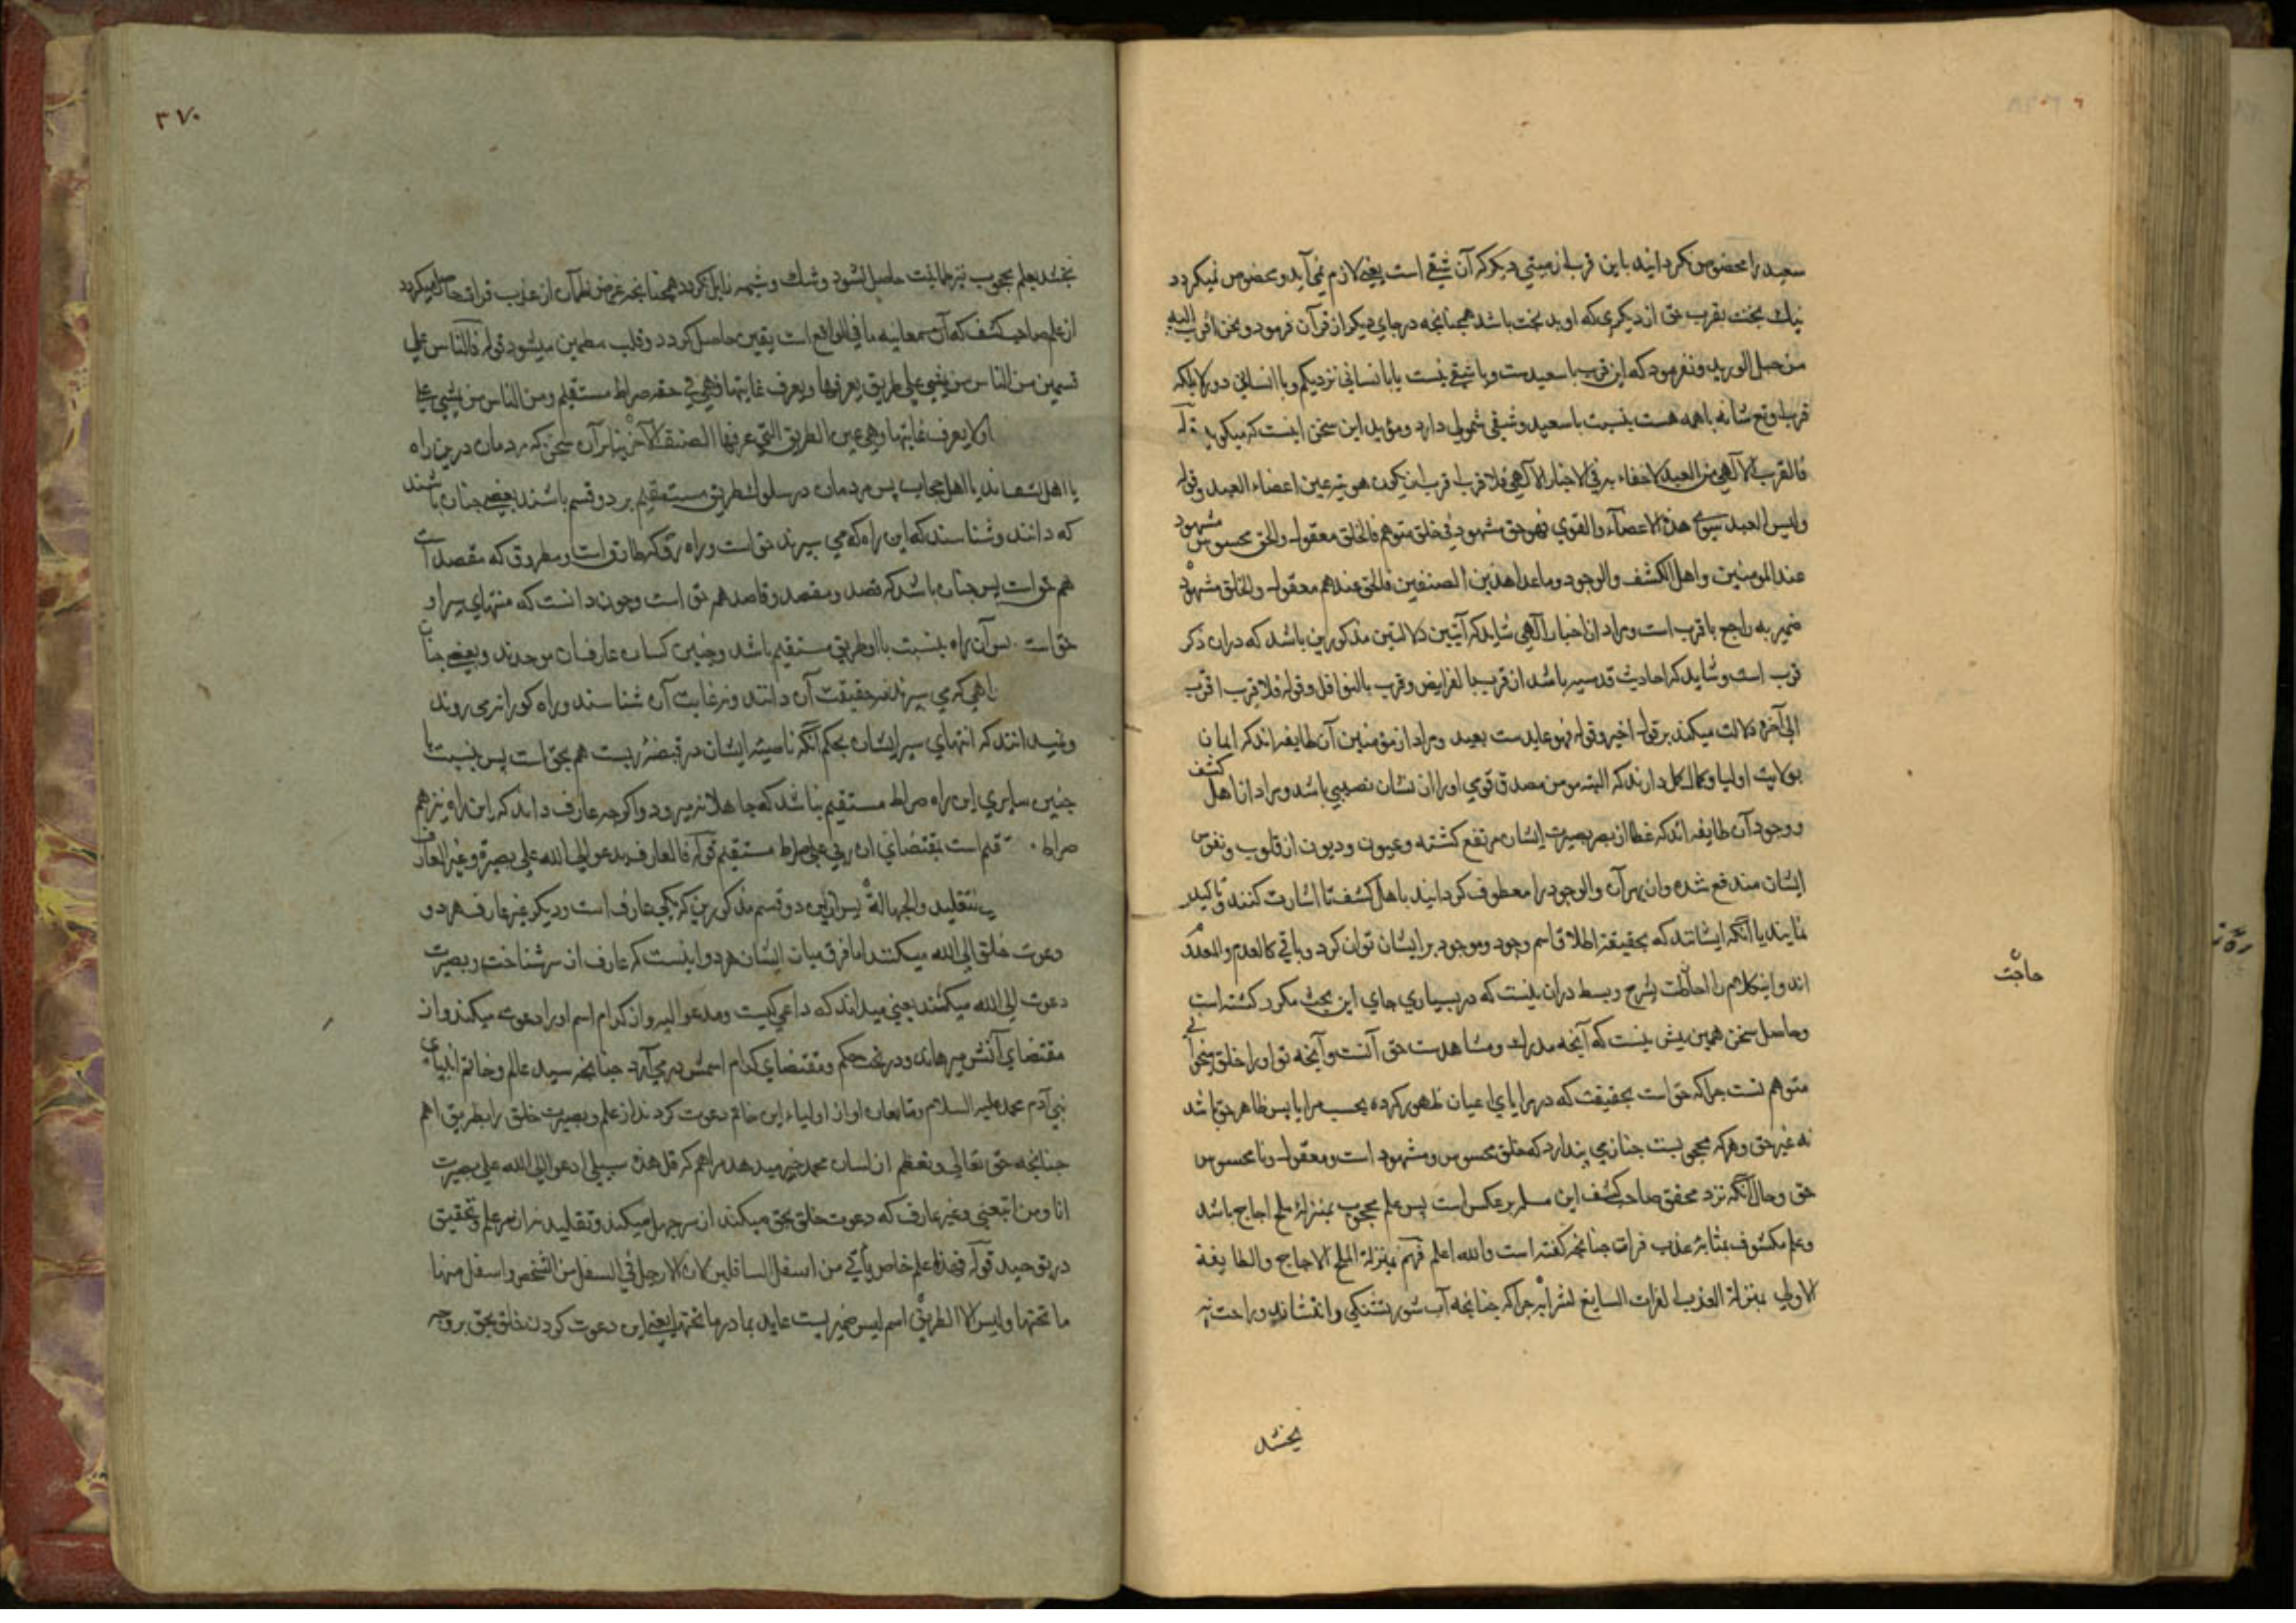 سعید را مخصوص نکردانید باین قرب از میتی دیکر که آن شقی است یعنی لازم نمی آید و مخصوص نمیکردد
نیك بخت بقرب حق از دیکری که او بد بخت باشد همچنانچه در جای دیکر از قرآن فرمود و نحن اقرب الیه
من حبل الورید و نفرمود که این قرب با سعیدست و با شقی نیست یا با انسانی نزدیکم و با انسانی دور لا بلکه
قرب او مع شانه با همه هست بنسبت با سعید و شقی شمولی دارد و مؤید این سخن اینست که میکوید قوله
فالقرب الالهی من العبد لا خفاء به فی الاخبار الالهی فلا قرب اقرب من ان یکون هویته عین اعضاء العبد و قواه
ولیس العبد سوی هذه الاعضاء والقوی فهو حق مشهود فی خلق متوهم فالخلق معقول والحق محسوس مشهود
عند المومنین واهل الکشف والوجود وما عدا هذین الصنفین فالحق عندهم معقول والخلق مشهود
ضمیر به راجع با قرب است و مراد از اخبار الهی شاید که آیتین دلالتین مذکورین باشد که دران ذکر
قرب است و شاید که احادیث قدسیه باشد از قرب بالفرایض و قرب بالنوافل و قوله فلا قرب اقرب
الی آخره دلالت میکند بر قول اخیر و قوله فهو عایدست بعبد و مراد از مؤمنین آن طایفه اند که ایمان
بولایت اولیا و کمال کمل دارند که البته مومن مصدق قوی او را ازان نشان نصیبی باشد و مراد از اهل کشف
و وجود آن طایفه اند که غطا از بصر بصیرت ایشان مرتفع کشته و عیون و دیون از قلوب و نفوس
ایشان مندفع شده و ازین بهر آن والوجود را معطوف کردانید با اهل کشف تا اشارت کنند و تاکید
نمایند یا آنکه ایشانند که بحقیقت اطلاق اسم وجود و موجود بر ایشان توان کرد و باقی کالعدم والمعدوم
اند و این کلام را احالت بشرح و بسط دران نیست که در بسیاری جای این بحث مکرر کشته است
حاجت
و حاصل سخن همین بیش نیست که آنچه مدرك و مشاهدت حق آنست و آنچه تو او را خلق میخوانی
متوهم تست چرا که حق است بحقیقت که در مرایای اعیان ظهور کرده بحسب مرایا پس ظاهر حق باشد
نه غیر حق و هر که محجوبست چنان می پندارد که خلق محسوس و مشهود است و معقول و نامحسوس
حق و حال آنکه نزد محقق صاحب کشف این مسله بر عکس است پس علم محجوب بمنزله ملح اجاج باشد
و علم مکشوف بمثابه عذب فرات چنانچه کفته است والله اعلم فهم بمنزلة الملح الاجاج والطایفة
الاولی بمنزلة العذب الفرات السایغ لشرابه چرا که چنانچه آب شور تشنکی وا ننشاند و راحت
بخشد
۳۷۰
نبخشد بعلم محجوب نیز طمانینت حاصل نشود و شك و شبهه زایل نکردد همچنانچه غرض ظمآن از عذب فرات حاصل میکردد
از علم صاحب کشف که آن معاینه ما فی الواقع است یقین حاصل کردد و قلب مطمین میشود قوله فالناس علی
قسمین من الناس من یمشی علی طریق یعرفها ویعرف غایتها فهی فی حقه صراط مستقیم ومن الناس من یمشی علی
ولا یعرف غایتها وهی عین الطریق التی عرفها الصنف الآخر بنا بر آن سخن که مردمان درین راه
یا اهل کشف اند یا اهل حجاب پس مردمان در سلوك طریق مستقیم بر دو قسم باشند بعضی چنان باشند
که دانند و شناسند که این راه که می سپرند حق است و راه رو که طارق است و مطروق که مقصد است
هم حق است پس چنان باشد که قصد و مقصد و قاصد هم حق است و چون دانست که منتهای سیر او
حق است پس آن راه بنسبت با او طریق مستقیم باشد و چنین کسان عارفان موحدند و بعضی چنان
راهی که می سپرند نه حقیقت آن دانند و نه غایت آن شناسند و راه کورانه می روند
و نمیدانند که انتهای سیر ایشان بحکم آنکه ناصیه ایشان در قبضه ربست هم بحق است پس بنسبت با
چنین سایری این راه صراط مستقیم نباشد که جاهلانه میرود و اکرچه عارف داند که این راه نیز هم
صراط مستقیم است بمقتضای ان ربی علی صراط مستقیم قوله فالعارف یدعو الی الله علی بصیرة وغیر العارف
التقلید والجهالة پس ازین دو قسم مذکورین که یکی عارف است و دیکر غیر عارف هر دو
دعوت خلق الی الله میکنند اما فرق میان ایشان هر دو اینست که عارف از سر شناخت و بصیرت
دعوت الی الله میکنند یعنی میداند که داعی کیست و مدعو الیه و از کدام اسم او را دعوت میکند و از
مقتضای آنش میرهاند و در تحت حکم و مقتضای کدام اسمش در می آرد چنانچه سید عالم و خاتم انبیای
بنی آدم محمد علیه السلام و متابعان او از اولیاء این خاتم دعوت کردند از علم و بصیرت خلق را بطریق اهم
چنانچه حق تعالی و تعظم از لسان محمد خبر میدهد مراهم که قل هذه سبیلی ادعو الی الله علی بصیرت
انا ومن اتبعنی و غیر عارف که دعوت خلق بحق میکند از سر جهل میکند و تقلید نه از سر علم و تحقیق
در توحید قوله فهذا علم خاص یأتی من اسفل السافلین لان الارجل فی السفل من الشخص واسفل منها
ما تحتها ولیس الا الطریق اسم لیس ضمیریست عاید بما در ما تحتها یعنی این دعوت کردن خلق بحق بر وجه